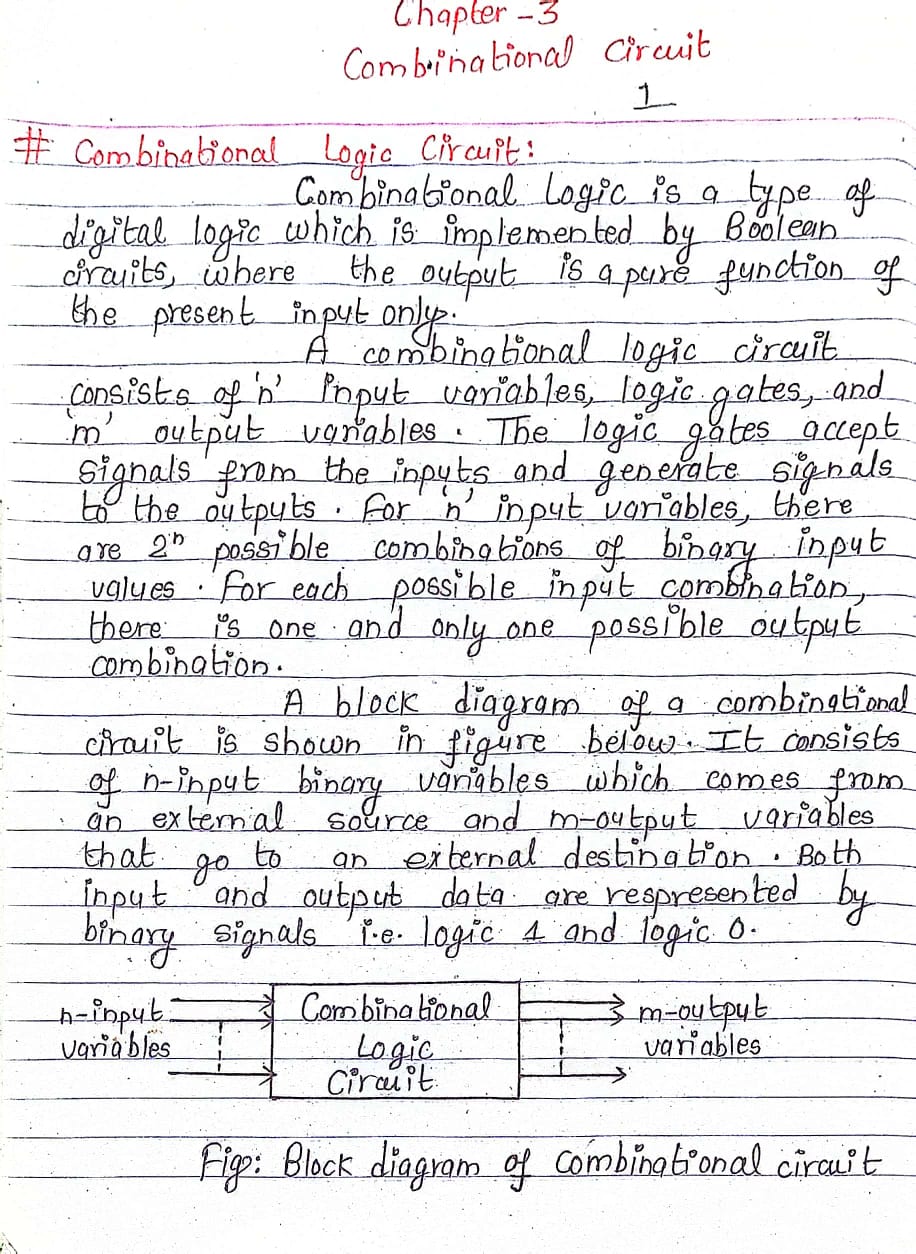 Chapter-3
Combinational Circuit
1
# Combinational Logic Circuit:
Combinational Logic is a type of
digital logic which is implemented by Boolean
circuits, where the output is a pure function of
the present input only.
A combinational logic circuit
consists of 'n' input variables, logic gates, and
'm' output variables. The logic gates accept
signals from the inputs and generate signals
to the outputs. For 'n' input variables, there
are 2ⁿ possible combinations of binary input
values. For each possible input combination,
there is one and only one possible output
combination.
A block diagram of a combinational
circuit is shown in figure below. It consists
of n-input binary variables which comes from
an external source and m-output variables
that go to an external destination. Both
input and output data are respresented by
binary signals i.e. logic 1 and logic 0.
n-input Combinational m-output
variables Logic variables
Circuit
Fig: Block diagram of combinational circuit